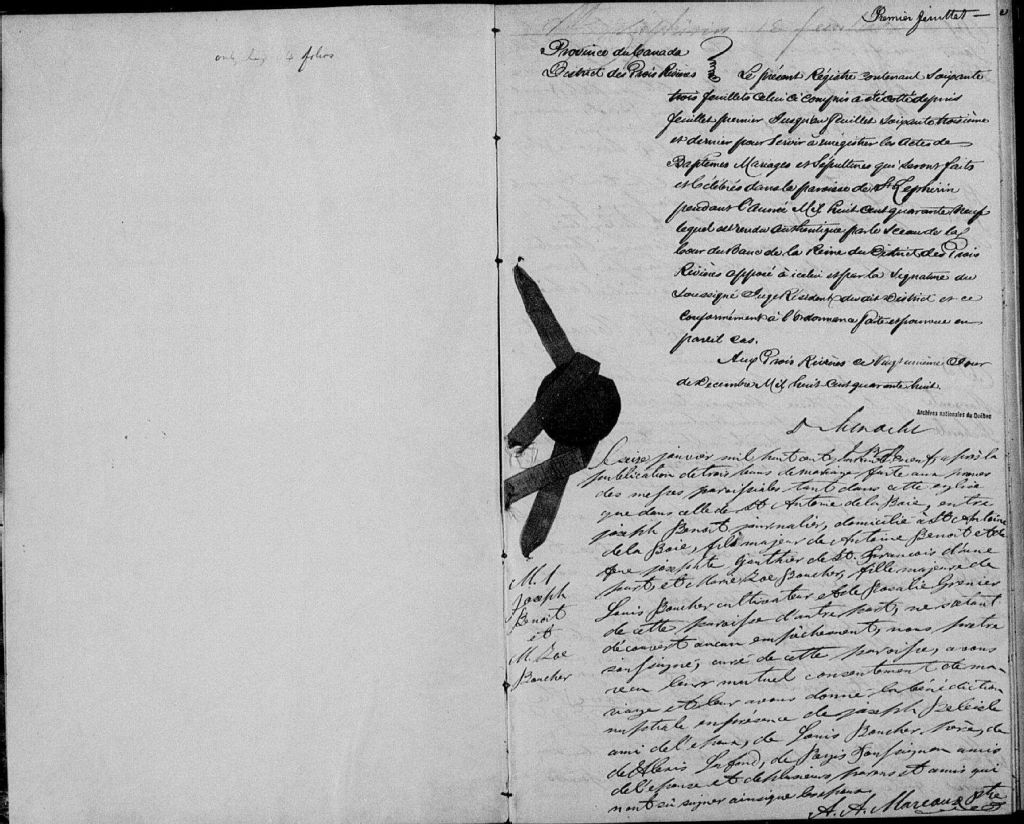 only 4 folios
Premier feuillet —
Province du Canada
District des Trois Rivières
Le présent Régistre contenant Soixante
trois feuillets celui ci compris a été coté depuis
feuillet premier jusqu'au feuillet soixante troisième
et dernier pour servir à enrégistrer les Actes de
Baptêmes Mariages et Sépultures qui seront faits
et célébrés dans la paroisse de St. Zéphirin
pendant l'Année Mil huit cent quarante neuf
lequel est rendu authentique par le Sceau de la
Cour du Banc de la Reine du District des Trois
Rivières apposé à icelui et par la signature du
Soussigné Juge Résident du dit District et ce
conformément à l'Ordonnance faite et pourvue en
pareil cas.
Aux Trois Rivières ce Vingt unième Jour
de Decembre Mil huit cent quarante huit.
Archives nationales du Québec
Le seize janvier mil huit cent quarante neuf, après la
publication de trois bans de mariage faite aux prones
des messes paroissiales tant dans cette église
que dans celle de St. Antoine de la Baie, entre
joseph Benoit journalier, domicilié à St. Antoine
de la Baie, fils majeur de Antoine Benoit et de
josephte Gauthier de St. François d'une
part, et Marie Zoé Boucher, fille majeure de
Louis Boucher cultivateur et de Rosalie Grenier
de cette paroisse d'autre part; ne s'étant
découvert aucun empêchement, nous prêtre
soussigné, curé de cette paroisse, avons
recu leur mutuel consentement de ma-
riage et leur avons donné la bénédiction
nuptiale en présence de joseph Belisle
ami de l'époux, de Louis Boucher, père, de
de Alexis Lafond, de amis
de l'épouse et de plusieurs parens et amis qui
n'ont su signer ainsi que les époux
A. A. Marcoux ptre
M. 1
Joseph
Benoit
et
M. Zoé
Boucher